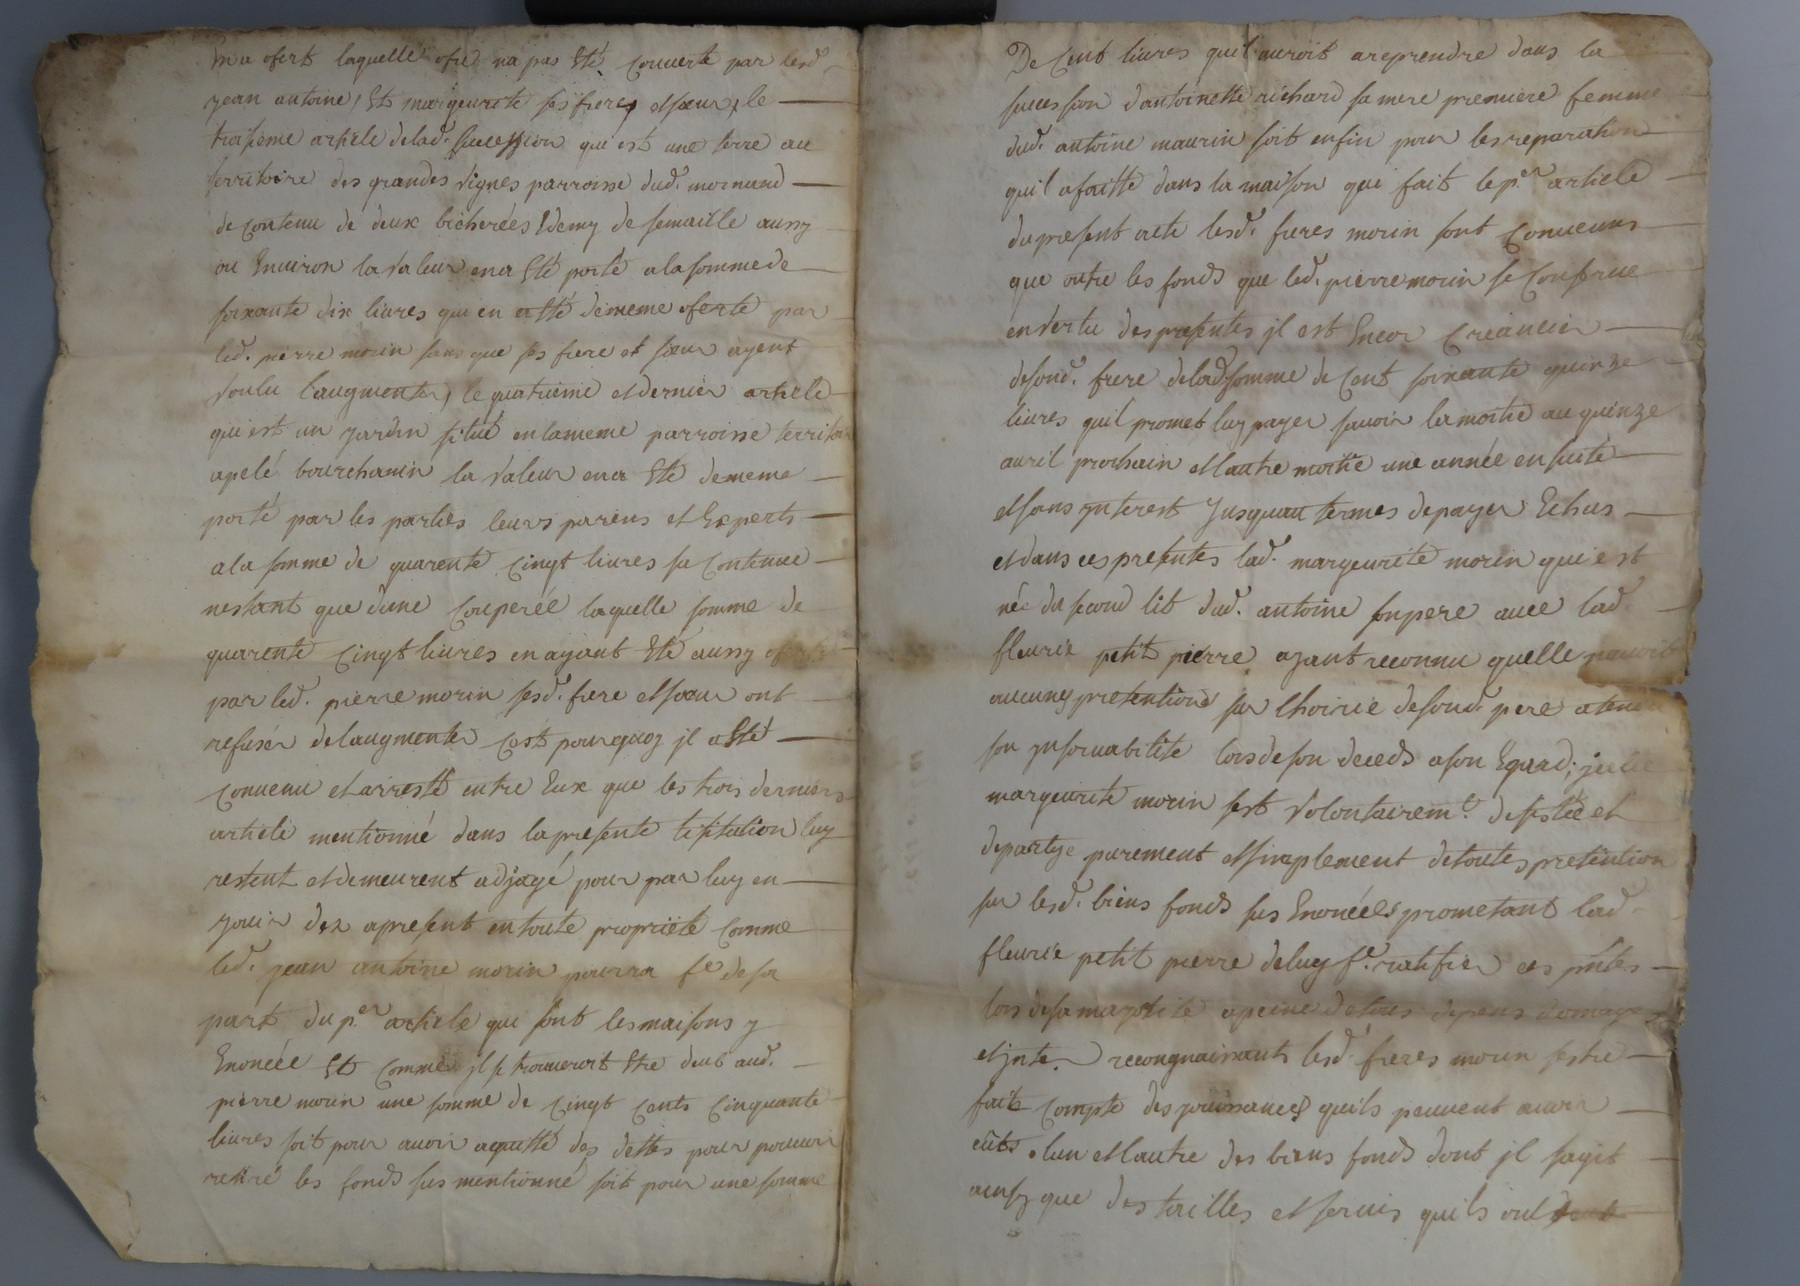 en a ofert laquelle ofre na pas Eté Couverte par lesd.
jean antoine, Et margeurite ses freres et sœur, le
troisieme article de lad. succession qui est une terre au
territoire des grandes vignes parroisse dud. mornand
de contenu de deux bicherées Edemy de semaille aussy
ou Environ la valeur en a Eté porté a la somme de
soixante dix livres qui en a Eté de meme oferte par
led. pierre morin sans que ses frere et sœur ayent
voulu l'augmenter, le quatrieme et dernier article
qui est un jardin situé en la meme parroisse territoire
apelé bourchanin la valeur en a Eté de meme
porté par les parties leurs parens et Experts
a la somme de quarente Cinqt livres sa Contenue
nestant que dune Couperée laquelle somme de
quarente Cinqt livres en ayant Eté aussy oferte
par led. pierre morin sesd. frere et sœur ont
refusér de laugmenter Cest pourquoy jl a Eté
Convenu et arresté entre Eux que les trois derniers
article mentionné dans la presente luy
restent et demeurent adjugé pour par luy en
jouir dez apresent en toute proprieté Comme
led. jean antoine morin pourra fe de sa
part du p.er article qui sont les maisons y
Enoncée Et Comme jl se trouveroit Etre deub aud.
pierre morin une somme de Cinqt Cents Cinquante
livres soit pour avoir aquitté des dettes pour pouvoir
retiré les fonds sus mentionné soit pour une somme
De Cent livres quil auroit a reprendre dans la
succession dantoinette richard sa mere premiere femme
dud. antoine maurin soit enfin pour les reparation
quil a faitte dans la maison qui fait le p.er article
du present acte lesd. freres morin sont Convenus
que outre les fonds que led. pierre morin se Conserve
en vertu des presentes jl est Encor Creancier
de sond. frere de lad. somme de Cent soixante quinze
livres quil promet luy payer savoir la moitié au quinze
avril prochain et lautre moitié une année en suite
et sans ynterest jusquau termes de payer Echus
et dans ces presentes lad. margeurite morin qui est
née du second lit dud. antoine son pere avec lad.
fleurie petit pierre ayant reconnu quelle
aucunes pretentions sur lhoirie de sond. pere atendu
son ynsolvabilité lors de son deceds a son Egard;
margeurite morin sest volontairem.t desistée et
departye purement et simplement de toutes pretention
sur lesd. biens fonds sus Enoncées prometant lad.
fleurie petit pierre de luy f.e ratifier ces pntes
lors de sa majorité a peine de tous depens domages
et jnts. recongnaissants lesd. freres morin sestre
faits Compte des jouissances quils peuvent avoir
eüts lun et lautre des biens fonds dont jl sagit
ainsy que des tailles et servis quils ont